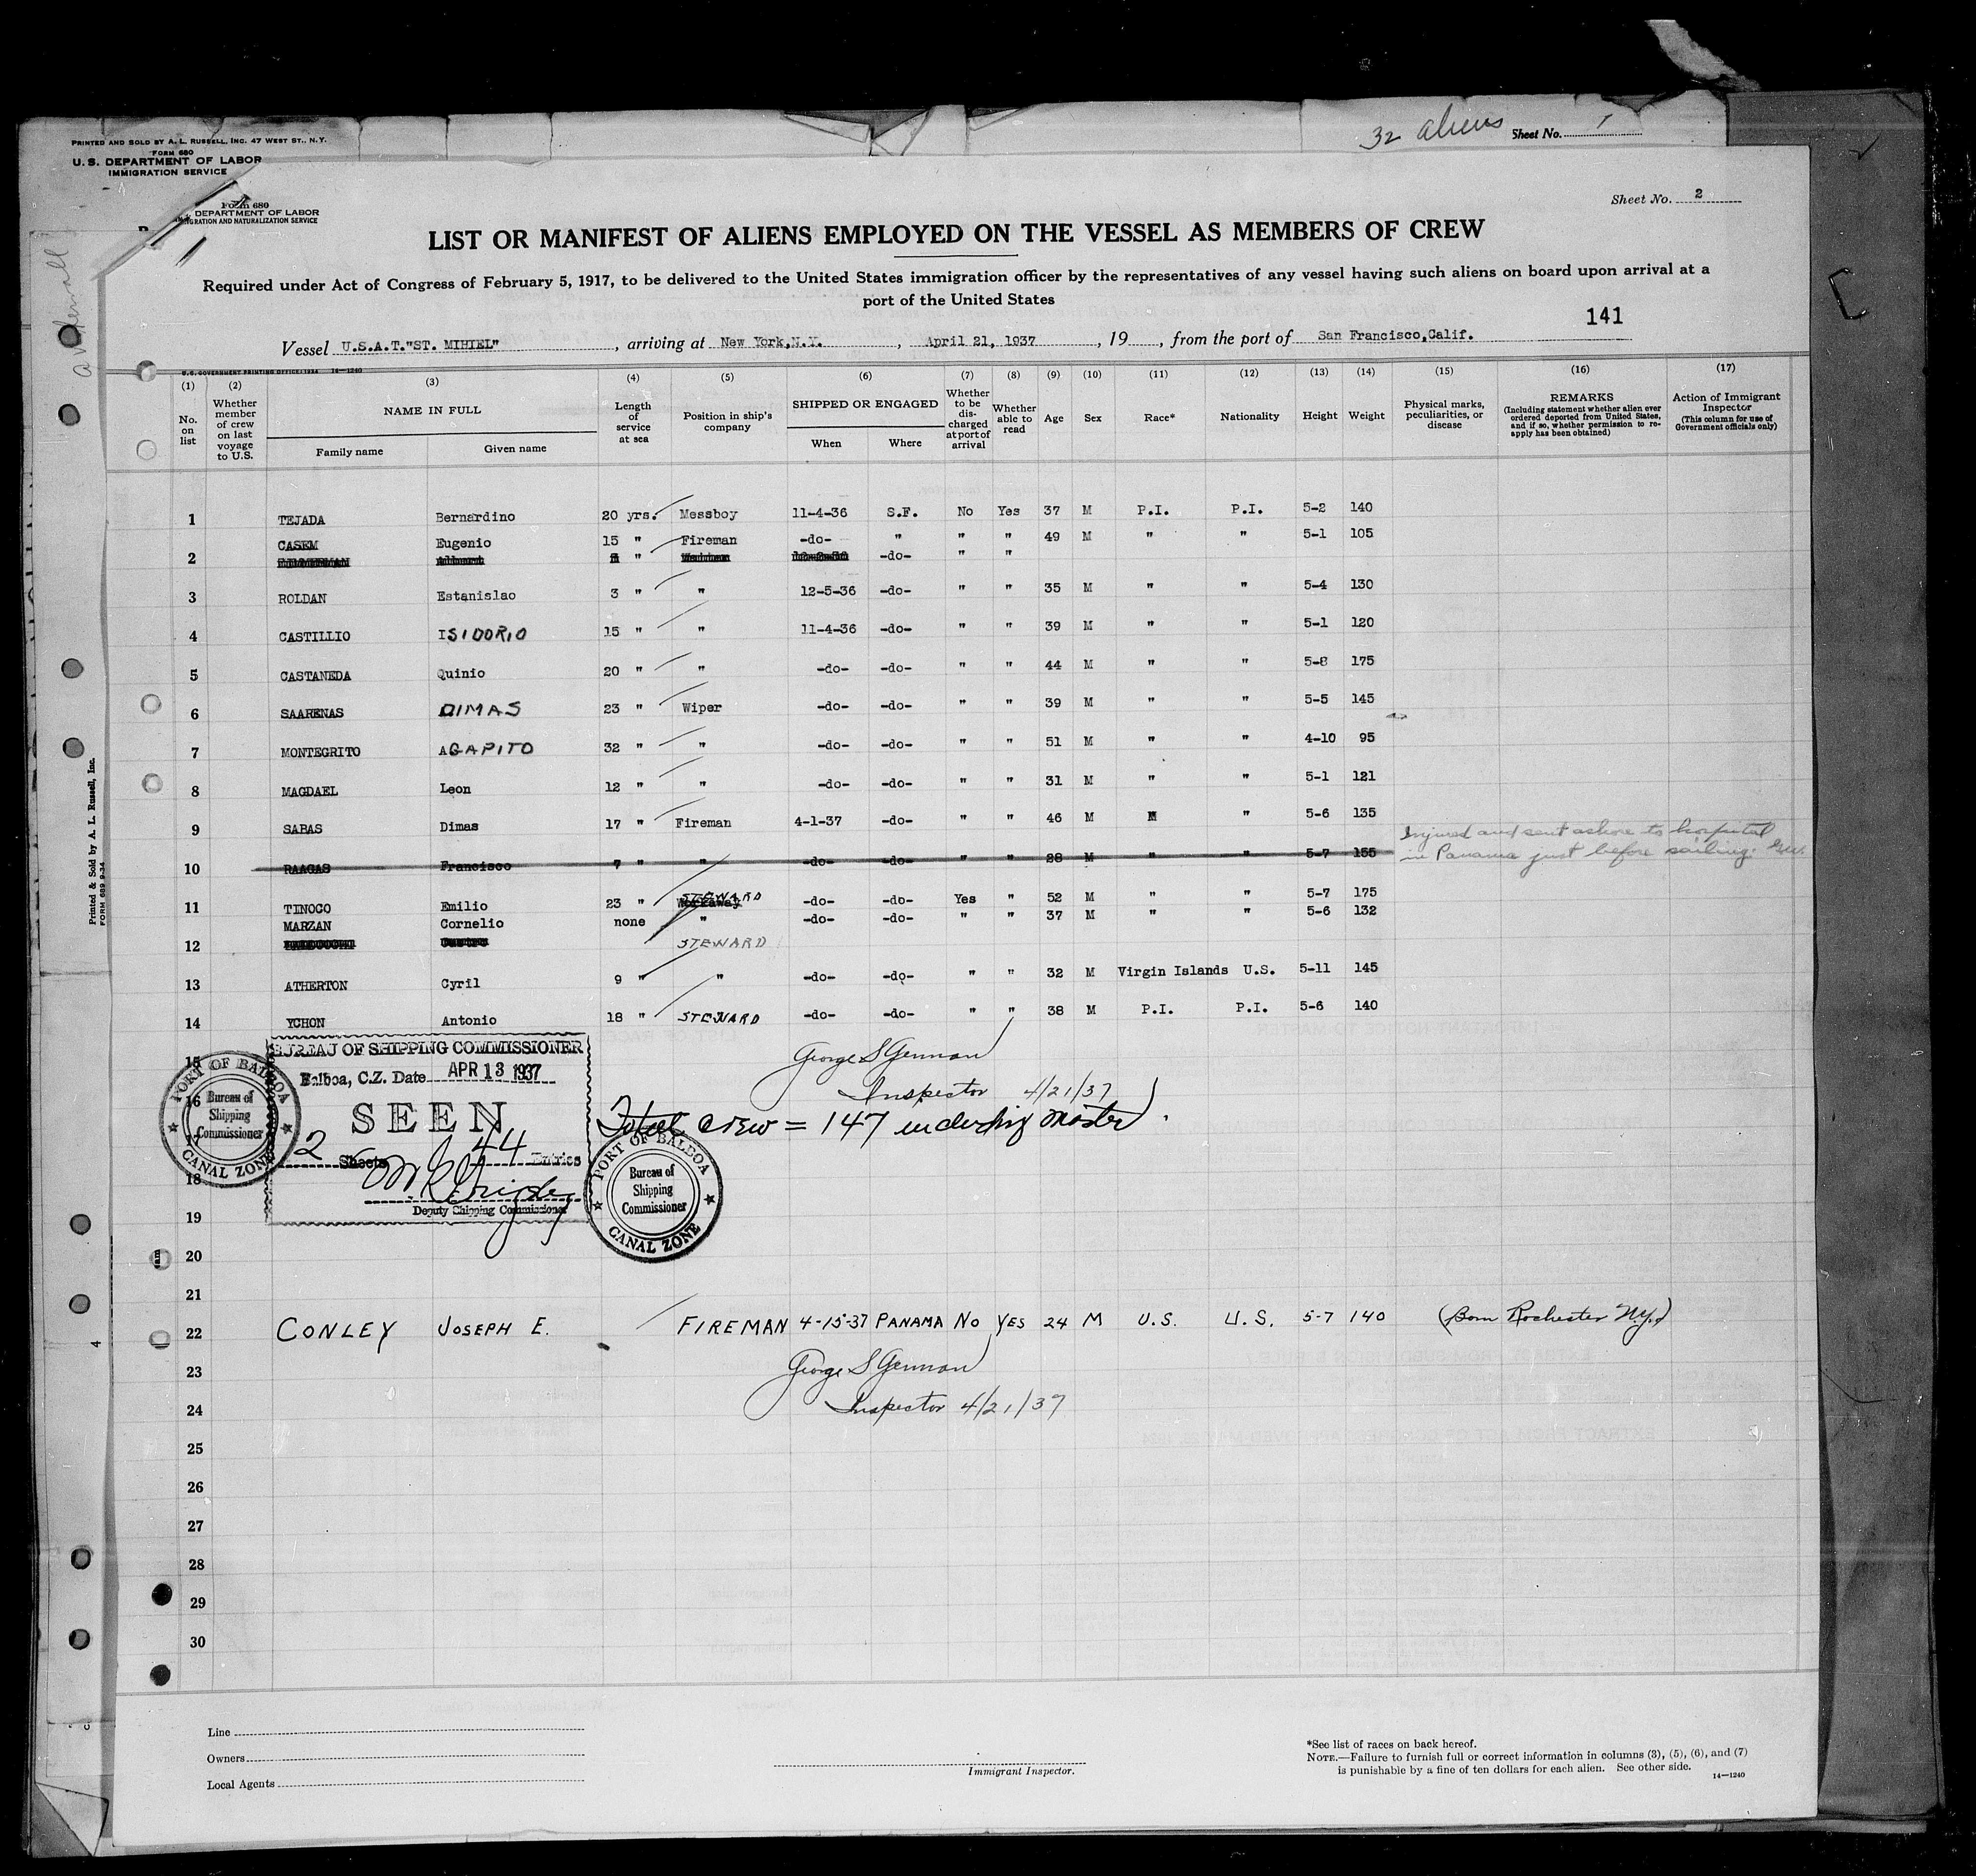 32 aliens Sheet No. 1
PRINTED AND SOLD BY A. L. RUSSELL, INC. 47 WEST ST., N.Y.
FORM 680
U. S. DEPARTMENT OF LABOR
IMMIGRATION SERVICE
Form 680
DEPARTMENT OF LABOR
IGRATION AND NATURALIZATION SERVICE
Sheet No. 2
LIST OR MANIFEST OF ALIENS EMPLOYED ON THE VESSEL AS MEMBERS OF CREW
Required under Act of Congress of February 5, 1917, to be delivered to the United States immigration officer by the representatives of any vessel having such aliens on board upon arrival at a
port of the United States
141
Vessel U.S.A.T."ST. MIHIEL", arriving at New York,N.Y., April 21, 1937, 19, from the port of San Francisco,Calif.
U.S. GOVERNMENT PRINTING OFFICE: 1934 14—1240
(1) (2) (3) (4) (5) (6) (7) (8) (9) (10) (11) (12) (13) (14) (15) (16) (17)
No. on list
Whether member of crew on last voyage to U.S.
NAME IN FULL
Family name Given name
Length of service at sea
Position in ship's company
SHIPPED OR ENGAGED
When Where
Whether to be discharged at port of arrival
Whether able to read
Age Sex Race* Nationality Height Weight
Physical marks, peculiarities, or disease
REMARKS
(Including statement whether alien ever ordered deported from United States, and if so, whether permission to reapply has been obtained)
Action of Immigrant Inspector
(This column for use of Government officials only)
1 TEJADA Bernardino 20 yrs. Messboy 11-4-36 S.F. No Yes 37 M P.I. P.I. 5-2 140
CASEM Eugenio 15 " Fireman -do- " " " 49 M " " 5-1 105
2 " -do- " "
3 ROLDAN Estanislao 3 " " 12-5-36 -do- " " 35 M " " 5-4 130
4 CASTILLIO ISIDORIO 15 " " 11-4-36 -do- " " 39 M " " 5-1 120
5 CASTANEDA Quinio 20 " " -do- -do- " " 44 M " " 5-8 175
6 SAARENAS DIMAS 23 " Wiper -do- -do- " " 39 M " " 5-5 145
7 MONTEGRITO AGAPITO 32 " " -do- -do- " " 51 M " " 4-10 95
8 MAGDAEL Leon 12 " " -do- -do- " " 31 M " " 5-1 121
9 SABAS Dimas 17 " Fireman 4-1-37 -do- " " 46 M " " 5-6 135
Injured and sent ashore to hospital
10 RAAGAS Francisco 7 " " -do- -do- " " 28 M " " 5-7 155 in Panama just before sailing.
11 TINOCO Emilio 23 " Workaway STEWARD -do- -do- Yes " 52 M " " 5-7 175
MARZAN Cornelio none " -do- -do- " " 37 M " " 5-6 132
12 STEWARD
13 ATHERTON Cyril 9 " " -do- -do- " " 32 M Virgin Islands U.S. 5-11 145
14 YCHON Antonio 18 " STEWARD -do- -do- " " 38 M P.I. P.I. 5-6 140
15
16
17
18
19
20
21
BUREAU OF SHIPPING COMMISSIONER
Balboa, C.Z. Date APR 13 1937
SEEN
2 Sheets 44 Entries
Deputy Shipping Commissioner
PORT OF BALBOA
Bureau of
Shipping
Commissioner
CANAL ZONE
George S German
Inspector 4/21/37
Total crew = 147 including master.
PORT OF BALBOA
Bureau of
Shipping
Commissioner
CANAL ZONE
22 CONLEY JOSEPH E. FIREMAN 4-15-37 PANAMA NO YES 24 M U.S. U.S. 5-7 140 (Born Rochester N.Y.)
23 George S German
24 Inspector 4/21/37
25
26
27
28
29
30
Printed & Sold by A. L. Russell, Inc.
FORM 689 9-34
4
Line
Owners
Local Agents
Immigrant Inspector.
*See list of races on back hereof.
NOTE.—Failure to furnish full or correct information in columns (3), (5), (6), and (7)
is punishable by a fine of ten dollars for each alien. See other side.
14—1240